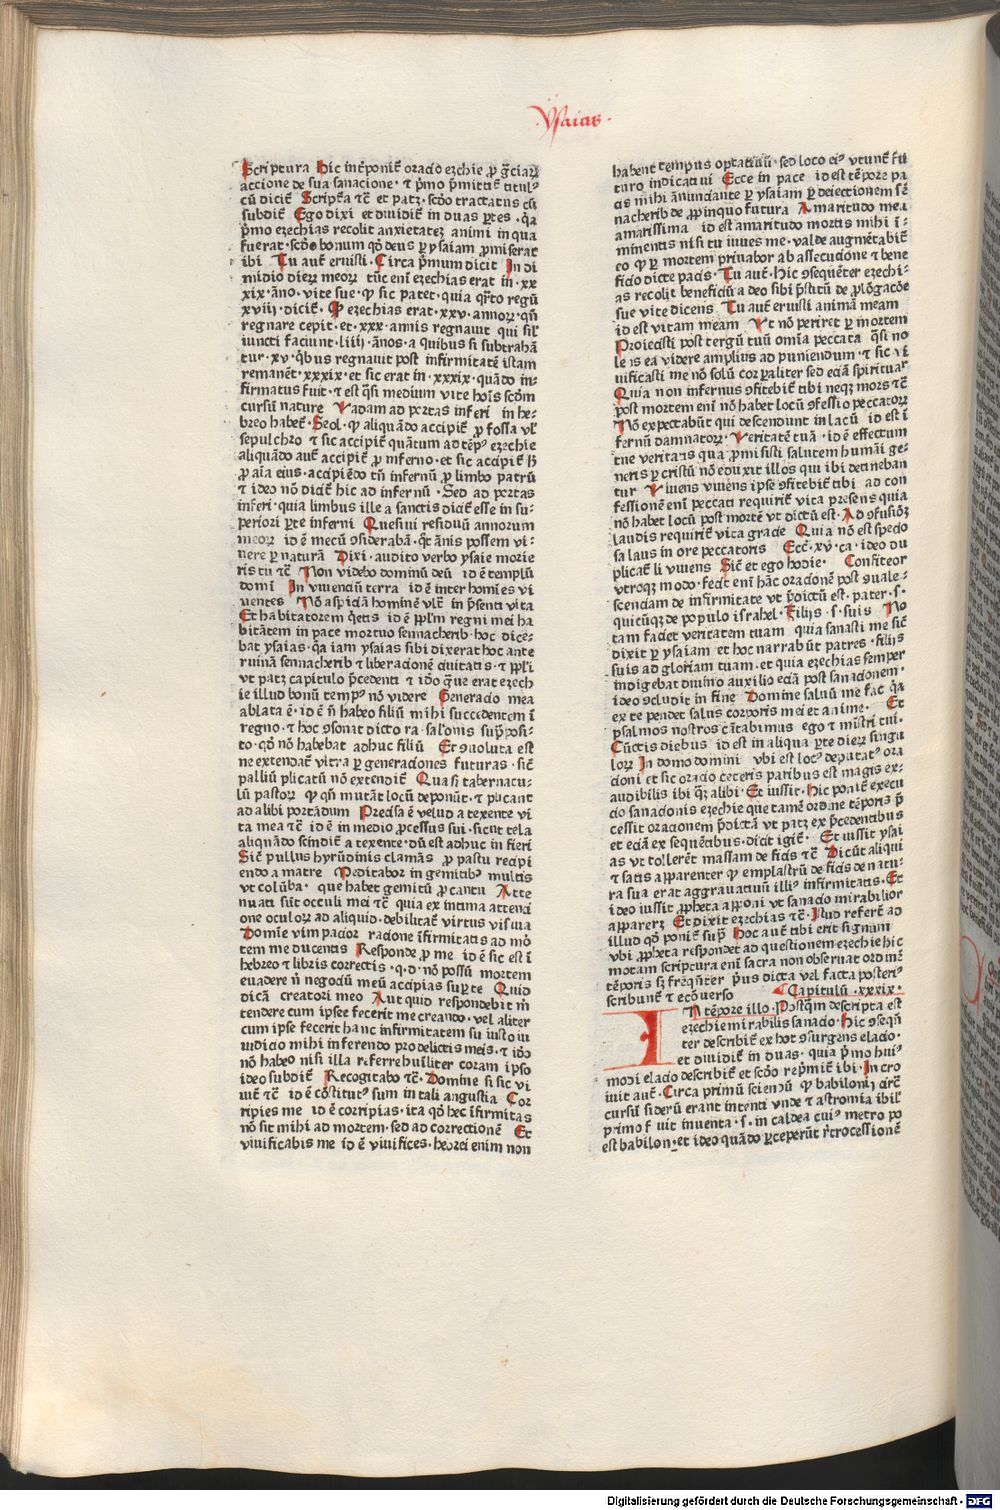 ·Ysaias·
Scriptura Hic int̄poniē oracio ezchie ꝓ gr̄ciaꝝ
accione de sua sanacione · ⁊ pͥmo pͥmitit᷑ titulꝰ
cū dicit᷑ Scripta tc̄ et patz · scd̄o tractatus cū
subdit᷑ Ego dixi et diuidit᷑ in duas ꝑtes · qͣ
pͥmo ezechias recolit anxietateꝫ animi in qua
fuerat · scd̄o bonum qd̄ deus ꝑ ysaiam ꝓmiserat
ibi Tu aut̄ eruisti · Circa pͥmum dicit In di
midio dierꝝ meoꝝ tūc eni ezechias erat in · xx
xix · āno · vite sue · ꝙ sic patet · quia qͣrto regū
xviij · dicit᷑ · ꝙ ezechias erat · xxv · annoꝝ · qn̄
regnare cepit · et · xxx · annis regnauit qui sil̓
iuncti faciunt · liiij · ānos · a quibus si subtrahā
tur · xv · qͥbus regnauit post infirmitatē istam
remanēt · xxxix · et sic erat in · xxxix · quādo in⸗
firmatus fuit · ⁊ est qͣsi medium vite hoīs scd̄m
cursū nature Vadam ad portas inferi in he⸗
breo habet᷑ · Seol · ꝙ aliquādo accipit᷑ ꝓ fossa vl̓
sepulchro ⁊ sic accipit᷑ quātum ad tēpꝰ ezechie
aliquādo aut̄ accipit᷑ ꝓ inferno · et sic accipit᷑ h̄
ꝓ aīa eius · accipiēdo tn̄ infernū ꝓ limbo patrū
⁊ ideo nō dicit᷑ hic ad infernū · Sed ad portas
inferi · quia limbus ille a sanctis dicit᷑ esse in su⸗
periori ꝑte inferni Quesiui residuū annorum
meoꝝ id ē mecū ꝯsiderabā · qͦt ānis possem vi⸗
uere ꝑ naturā Dixi · audito verbo ysaie morie
ris tu tc̄ Non videbo dominū deū id ē templū
domi In viuenciū terra id ē inter homīes vi
uentes Nō aspiciā hominē vlt̄ in pn̄senti vita
Et habitatorem qͥetis id ē pp̄l̓m regni mei ha
bitātem in pace mortuo sennacherib · hoc dice⸗
bat ysaias · qͣ iam ysaias sibi dixerat hoc ante
ruinā sennacherib ⁊ liberacionē ciuitatis · ⁊ ppl̓i
vt patz capitulo pͥcedenti ⁊ idō qͥue erat ezech
ie illud bonū tempꝰ nō videre Generacio mea
ablata ē · id ē n̄ habeo filiū mihi succedentem ī
regno · ⁊ hoc ꝯsonat dicto ra · sal̓onis supͣposi⸗
to · qd̄ nō habebat adhuc filiū Et ꝯuoluta est
ne extendat᷑ vltra ꝑ generaciones futuras · sic̄
palliū plicatū nō extendit᷑ Quasi tabernacu⸗
lū pastoꝝ ꝙ qn̄ mutāt locū deponūt᷑ · ⁊ plicant᷑
ad alibi portādum Precisa ē velud a texente vi
ta mea tc̄ id ē in medio ꝓcessus sui · sicut tela
aliquādo scindit᷑ a texente · dū est adhuc in fieri
Sic̄ pullus hyrūdinis clamās ꝓ pastu recipi
endo a matre Meditabor in gemitibꝰ multis
vt colūba · que habet gemitū ꝓ cantu Atte
nuati sūt occuli mei tc̄ quia ex intima attenci
one oculoꝝ ad aliquid · debilitat᷑ virtus visiua
Domīe vim pacior racione īfirmitatis ad mō
tem me ducentis Responde ꝓ me id ē sic est ī
hebreo ⁊ libris correctis · q · d · nō possū mortem
euadere nͥ negociū meū accipias suꝑ te Quid
dicā creatori meo Aut quid respondebit mͥ
tendere cum ipsee fecerit me creando · vel aliter
cum ipse fecerit hanc infirmitatem su iusto iu
iudicio mihi inferendo pro delictis meis · ⁊ idō
nō habeo nisi illa referre hūiliter coram ipso
ideo subdit᷑ Recogitabo tc̄ · Domine si sic vi
uit᷑ tc̄ id ē cōstitutꝰ sum in tali angustia Cor
ripies me id ē corripias · ita qd̄ hec īfirmitas
nō sit mihi ad mortem · sed ad correctionē Et
viuificabis me id ē viuifices · hebrei enim non
habent tempus optatiuū · sed loco eiꝰ vtunt᷑ fū
turo indicatiui Ecce in pace id est tēpore pa
cis mihi ānunciante ꝑ ysaiam ꝑ deiectionem sē
nacherib de ꝓpinquo futura Amaritudo mea
amarissima id est amaritudo mortis mihi ī⸗
minentis nisi tu iuues me · valde augmētabit᷑
eo ꝙ ꝑ mortem priuabor ab assecucione ⁊ bene
ficio dicte pacis · Tu aut̄ · Hic ꝯsequēter ezechi⸗
as recolit beneficiū a deo sibi pͥstitū de ꝓlōgacōe
sue vite dicens Tu aut̄ eruisti animā meam
id est vitam meam Vt nō periret ꝑ mortem
Proiecisti post tergū tuū om̄ia peccata qͣsi no
le īs ea videre amplius ad puniendum · ⁊ sic vi
uificasti me nō solū corꝑaliter sed eciā spirituar
Quia non infernus ꝯfitebit᷑ tibi neqꝫ mors tc̄
post mortem eni nō habet locū ꝯfessio peccatoꝝ
Nō expectabūt qui descendunt in lacū id est ī
fernū damnatoꝝ · Veritatē tuā · id ē effectum
tue veritatis qua ꝓmisisti salutem humani ge⸗
neris ꝑ cristū nō eduxit illos qui ibi detineban
tur Viuens viuens ipse ꝯfitebit᷑ tibi ad con
fessionē eni peccati requirit᷑ vita presens quia
nō habet locū post mortē vt dictū est · Ad ꝯfusiōꝫ
laudis requirit᷑ vita gracie Quia nō est specio
sa laus in ore peccatoris Ecc̄ · xv · ca · ideo du
plicat᷑ li viuens Sic̄ et ego hodie · Confiteor
vtroqꝫ modo · fecit eni hāc oracionē post ꝯuale⸗
scenciam de infirmitate vt pͥdictū est · pater · s ·
quicūqꝫ de populo israhel · Filijs · s · suis No
tam faciet veritatem tuam quia sanasti me sic̄
dixit ꝑ ysaiam et hoc narrabūt patres · filijs
suis ad gloriam tuam · et quia ezechias semper
indigebat diuino auxilio eciā post sanacionem ·
ideo ꝯcludit in fine Domine saluū me fac qͣ
ex te pendet salus corporis mei et anime · Et
psalmos nostros cātabimus ego ⁊ mīstri tui ·
Cūctis diebus id est in aliqua ꝑte dieꝝ singu
loꝝ In domo domini vbi est locꝰ deputatꝰ ora
cioni et sic oracio ceteris paribus est magis ex⸗
audibilis ibi qͣꝫ alibi · Et iussit · Hic ponit᷑ execu
cio sanacionis ezechie que tamē ordine tēporis p̄
cessit oracionem pͥdictā vt patz ex pͥcedentibus
et eciā ex sequētibus · dicit igit᷑ · Et iussit ysai
as vt tollerēt massam de ficis tc̄ Dicūt aliqui
⁊ satis apparenter ꝙ emplastrū de ficis de natu⸗
ra sua erat aggrauatiuū illiꝰ infirmitatis · Et
ideo iussit ꝓpheta apponi vt sanacio mirabilior
apparerꝫ Et dixit ezechias tc̄ · Istud refert᷑ ad
illud qd̄ ponit᷑ supͣ Hoc aut̄ tibi erit signum
vbi ꝓpheta respondet ad questionem ezechie hic
motam scriptura eni sacra non obseruat ordinē
tēporis sꝫ frequēter pͥus dicta vel facta posteriꝰ
scribunt᷑ ⁊ ecōuerso Capitulū · xxxix ·
IN tēpore illo · Postqͣm descripta est
ezechie mirabilis sanacio · Hic ꝯseqn̄
ter describit᷑ ex hoc ꝯsurgens elacio ·
et diuidit᷑ in duas · quia pͥmo huiꝰ
modi elacio describit᷑ et scd̄o repͥmit᷑ ibi · In cro
iuit aut̄ · Circa primū sciendū ꝙ babilonij circ̄
cursū siderū erant intenti vnde ⁊ astromia ibil̓
primo fuit inuenta · s · in caldea cuiꝰ metro po
est babilon · et ideo quādo ꝑceperūt rͤtrocessionē
Digitalisierung gefördert durch die Deutsche Forschungsgemeinschaft - DFG